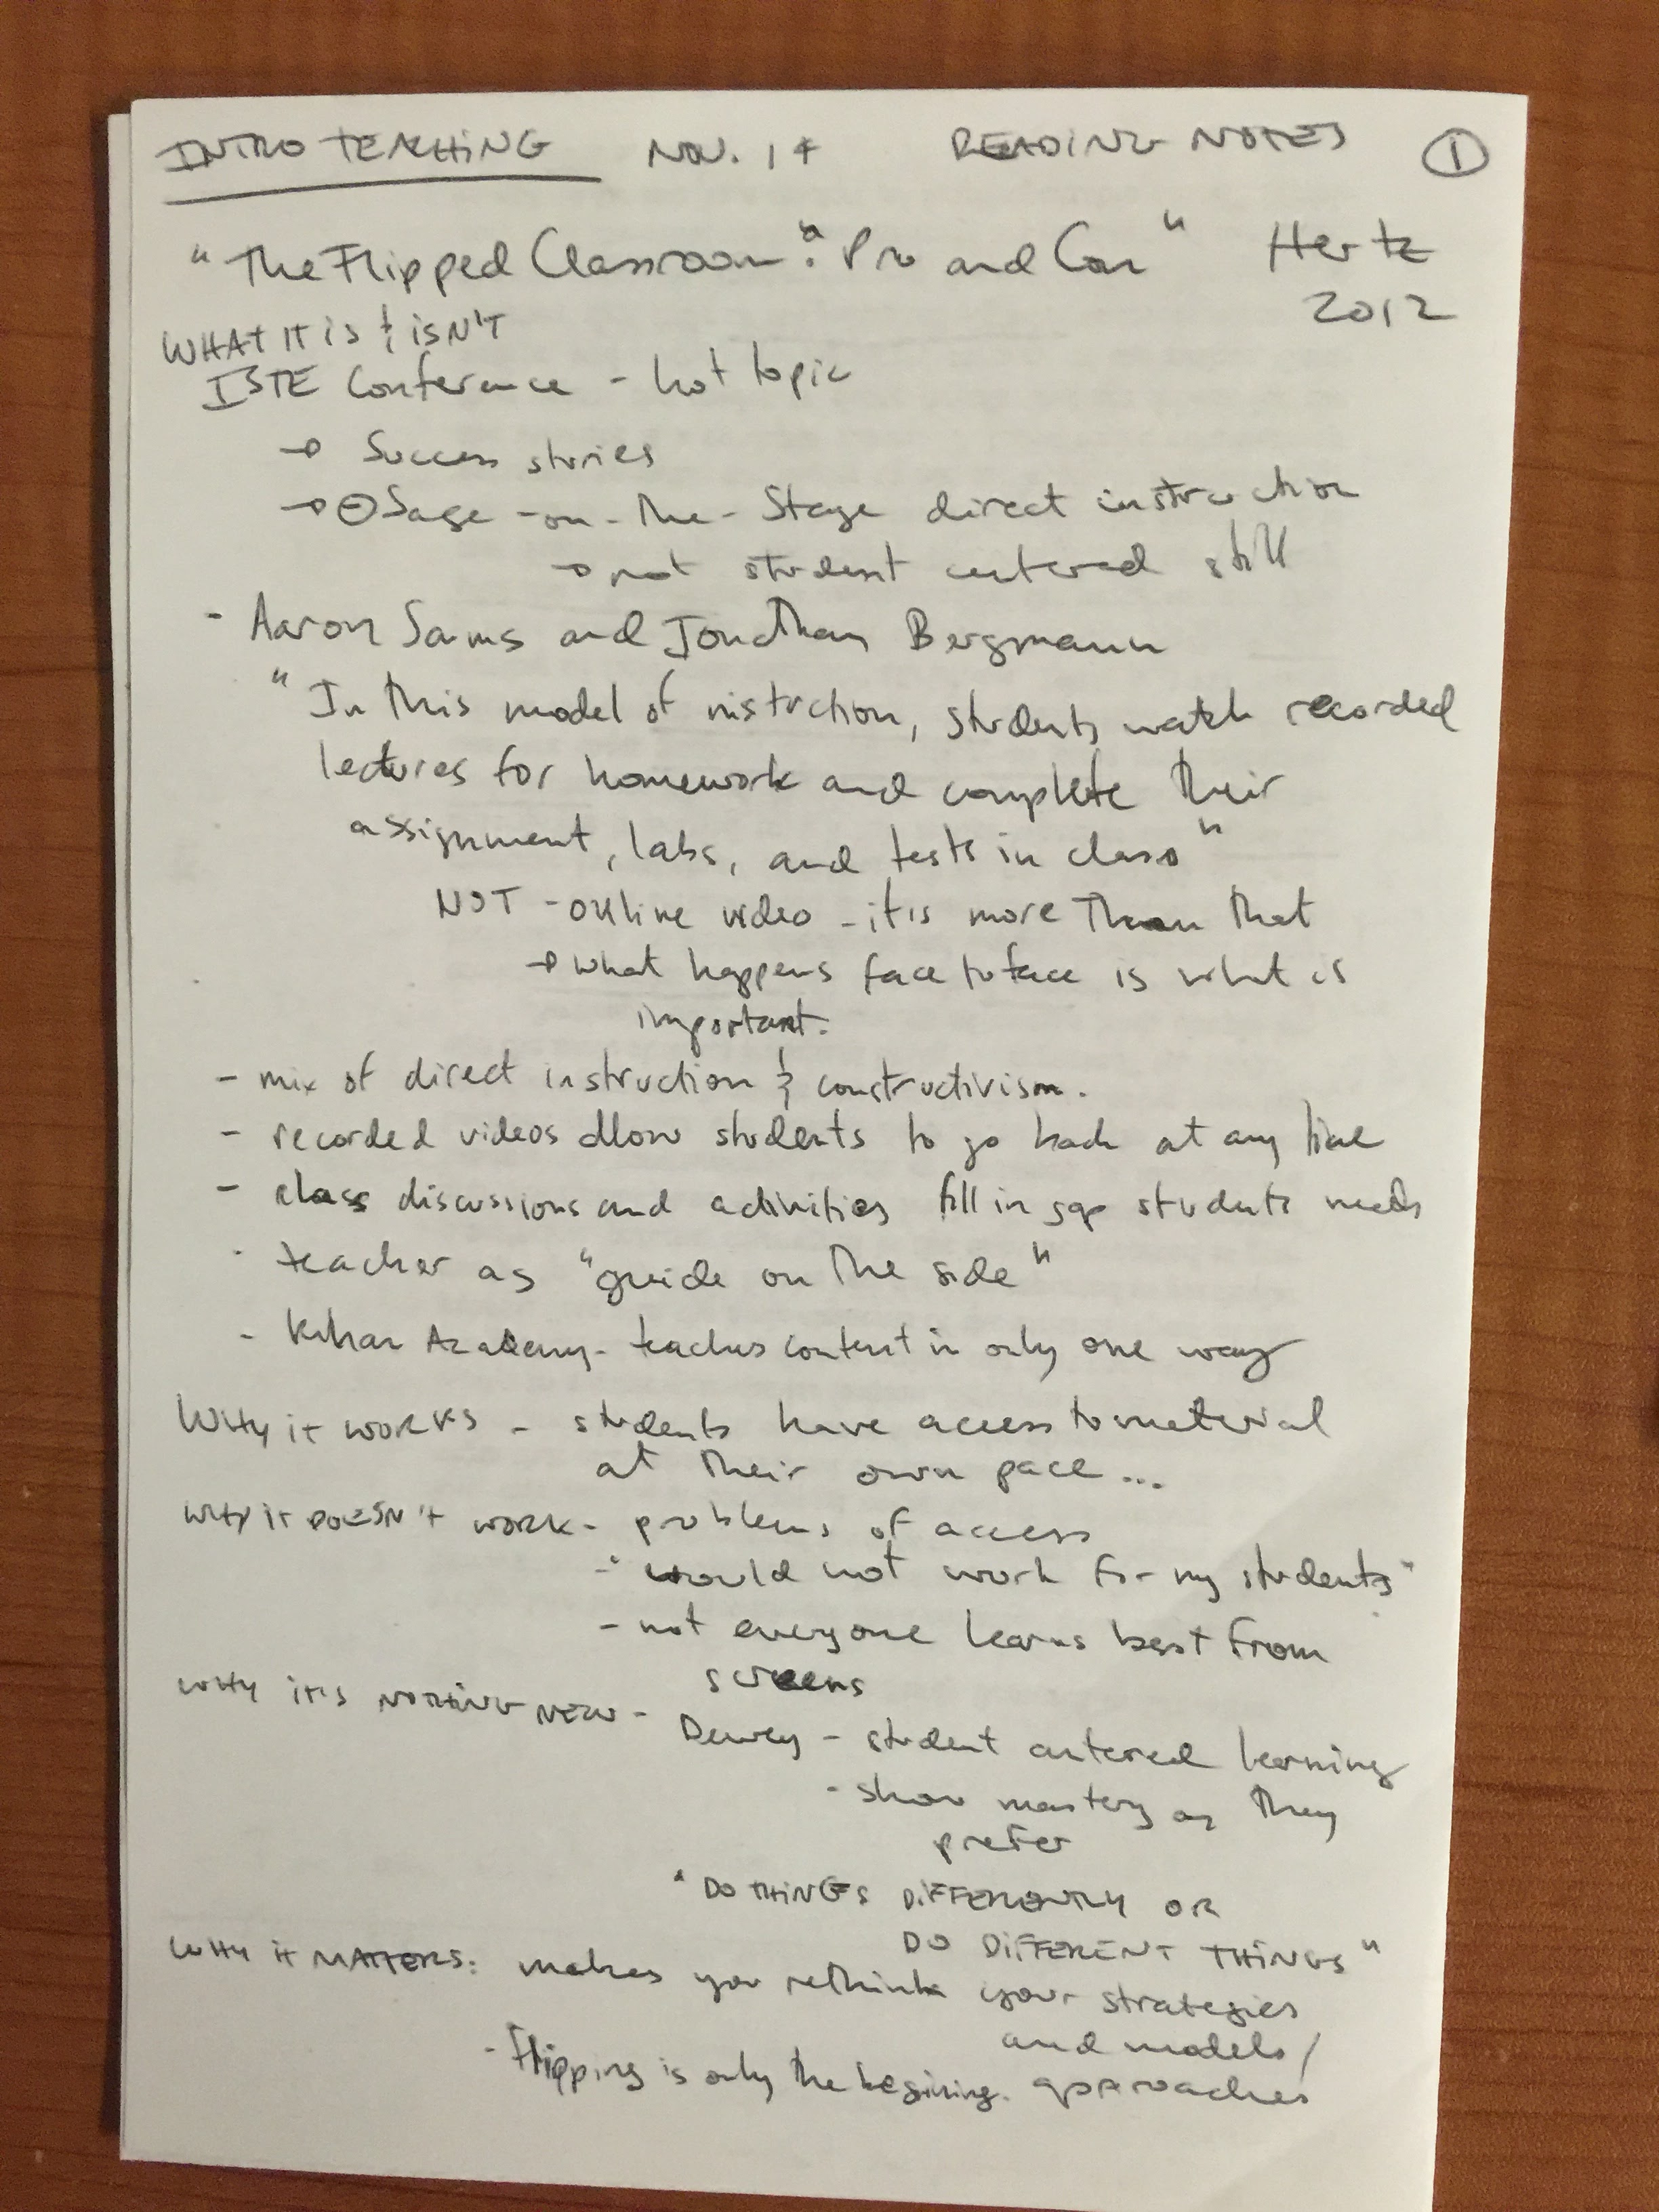 INTRO TEACHING NOV. 14 READING NOTES 1
"The Flipped Classroom": Pro and Con" Hertz
2012
WHAT IT is & isN'T
ISTE Conference - hot topic
→ Success stories
→ ⊖ Sage-on-the-Stage direct instruction
→ not student centered still
- Aaron Sams and Jonathan Bergmann
"In this model of instruction, students watch recorded
lectures for homework and complete their
assignment, labs, and tests in class"
NOT - online video - it is more Than that
→ what happens face to face is what is
important.
- mix of direct instruction & constructivism.
- recorded videos allow students to go back at any time
- class discussions and activities fill in gap students needs
- teacher as "guide on the side"
- Kahn Academy - teaches content in only one way
WHY it WORKS - students have access to material
at their own pace...
WHY iT DOESN'T WORK - problems of access
- "would not work for my students"
- not everyone learns best from
screens
WHY it's NOTHING NEW - Dewey - student centered learning
- show mastery as they
prefer
"DO THINGS DIFFERENTLY OR
DO DIFFERENT THINGS"
WHY iT MATTERS: makes you rethink your strategies
and models/
approaches
- Flipping is only the begining.